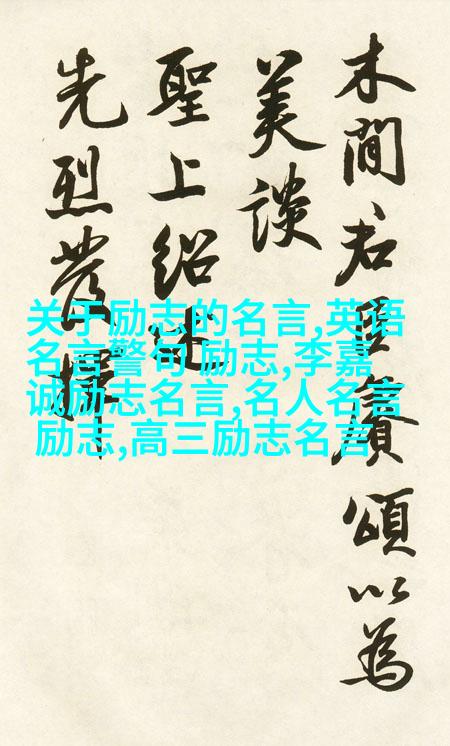 木間君臣賡頌以為
美談
聖上紹述
先烈發揮
关于励志的名言,英语
名言警句 励志,李嘉
诚励志名言,名人名言
励志,高三励志名言